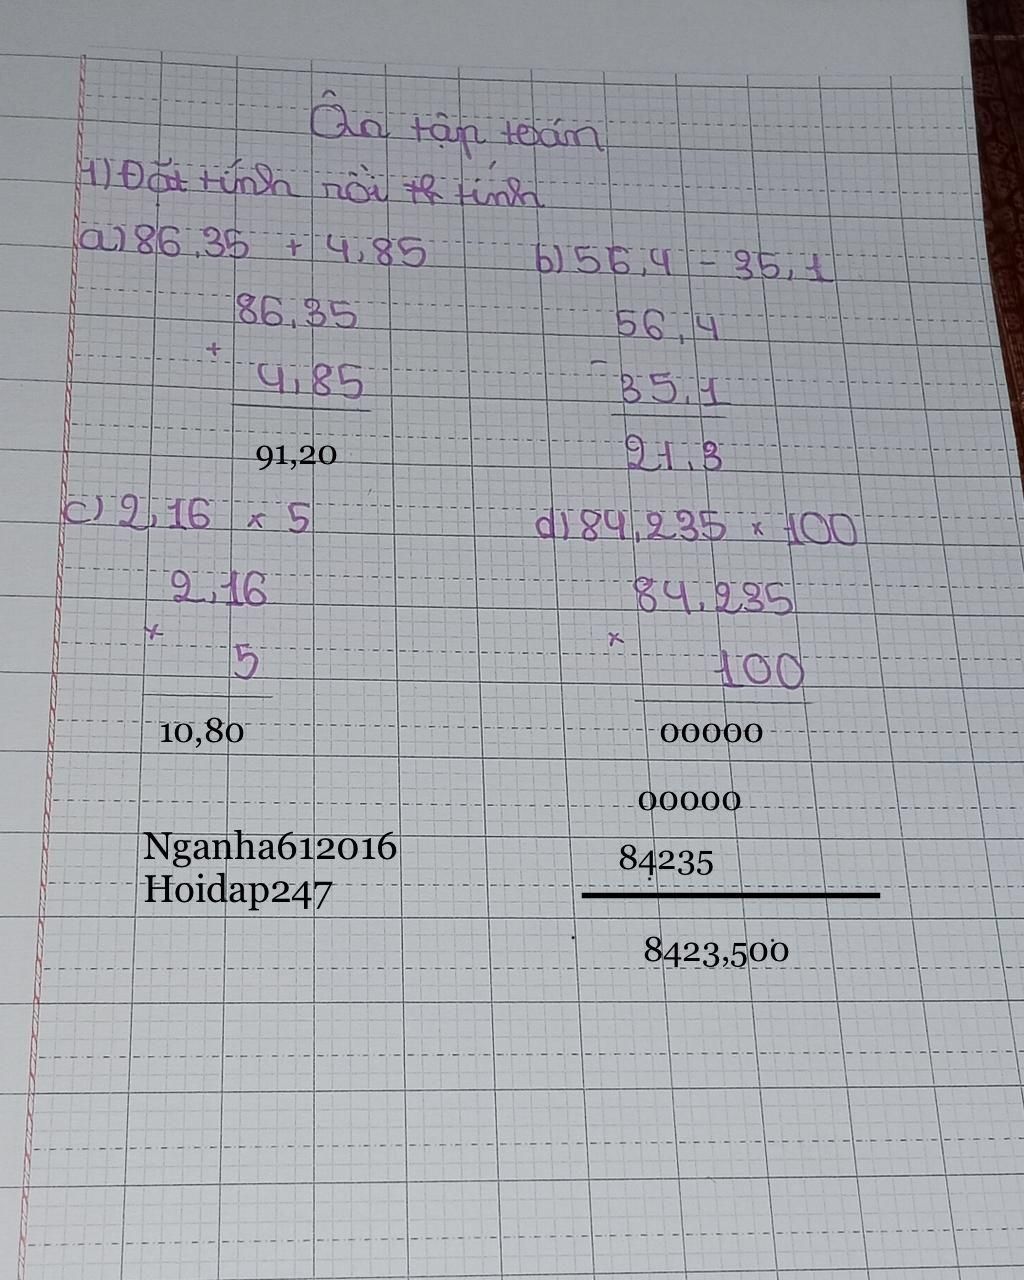 Ôn tập toán
1) Đặt tính rồi tính
a) 86,35 + 4,85
b) 56,4 - 35,1
86,35
+
4,85
91,20
56,4
-
35,1
21,3
c) 2,16 × 5
d) 84,235 × 100
2,16
×
5
10,80
84,235
×
100
00000
00000
84235
8423,500
Nganha612016
Hoidap247